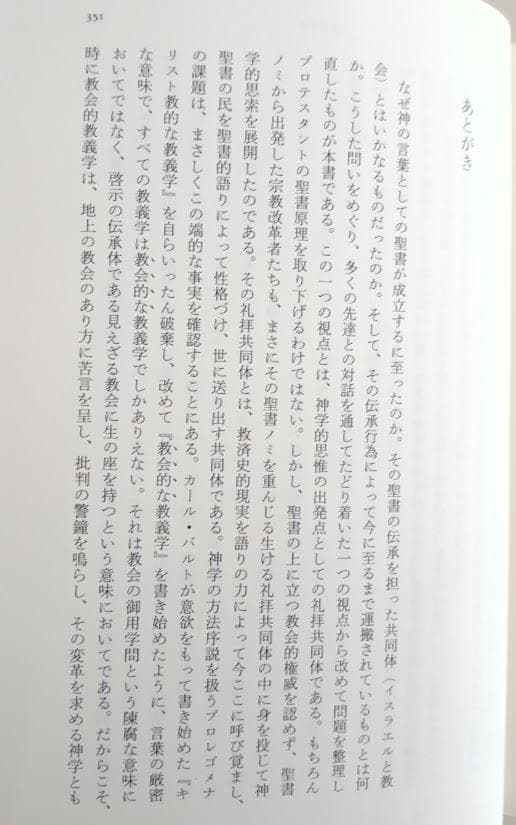 あとがき
なぜ神の言葉としての聖書が成立するに至ったのか。その聖書の伝承を担った共同体（イスラエルと教
会）とはいかなるものだったのか。そして、その伝承行為によって今に至るまで運搬されているものとは何
か。こうした問いをめぐり、多くの先達との対話を通してたどり着いた一つの視点から改めて問題を整理し
直したものが本書である。この一つの視点とは、神学的思惟の出発点としての礼拝共同体である。もちろん
プロテスタントの聖書原理を取り下げるわけではない。しかし、聖書の上に立つ教会的権威を認めず、聖書
ノミから出発した宗教改革者たちも、まさにその聖書ノミを重んじる生ける礼拝共同体の中に身を投じて神
学的思索を展開したのである。その礼拝共同体とは、救済史的現実を語りの力によって今ここに呼び覚まし、
聖書の民を聖書的語りによって性格づけ、世に送り出す共同体である。神学の方法序説を扱うプロレゴメナ
の課題は、まさしくこの端的な事実を確認することにある。カール・バルトが意欲をもって書き始めた『キ
リスト教的な教義学』を自らいったん破棄し、改めて『教会的な教義学』を書き始めたように、言葉の厳密
な意味で、すべての教義学は教会的な教義学でしかありえない。それは教会の御用学問という陳腐な意味に
おいてではなく、啓示の伝承体である見えざる教会に生の座を持つという意味においてである。だからこそ、
時に教会的教義学は、地上の教会のあり方に苦言を呈し、批判の警鐘を鳴らし、その変革を求める神学とも
351